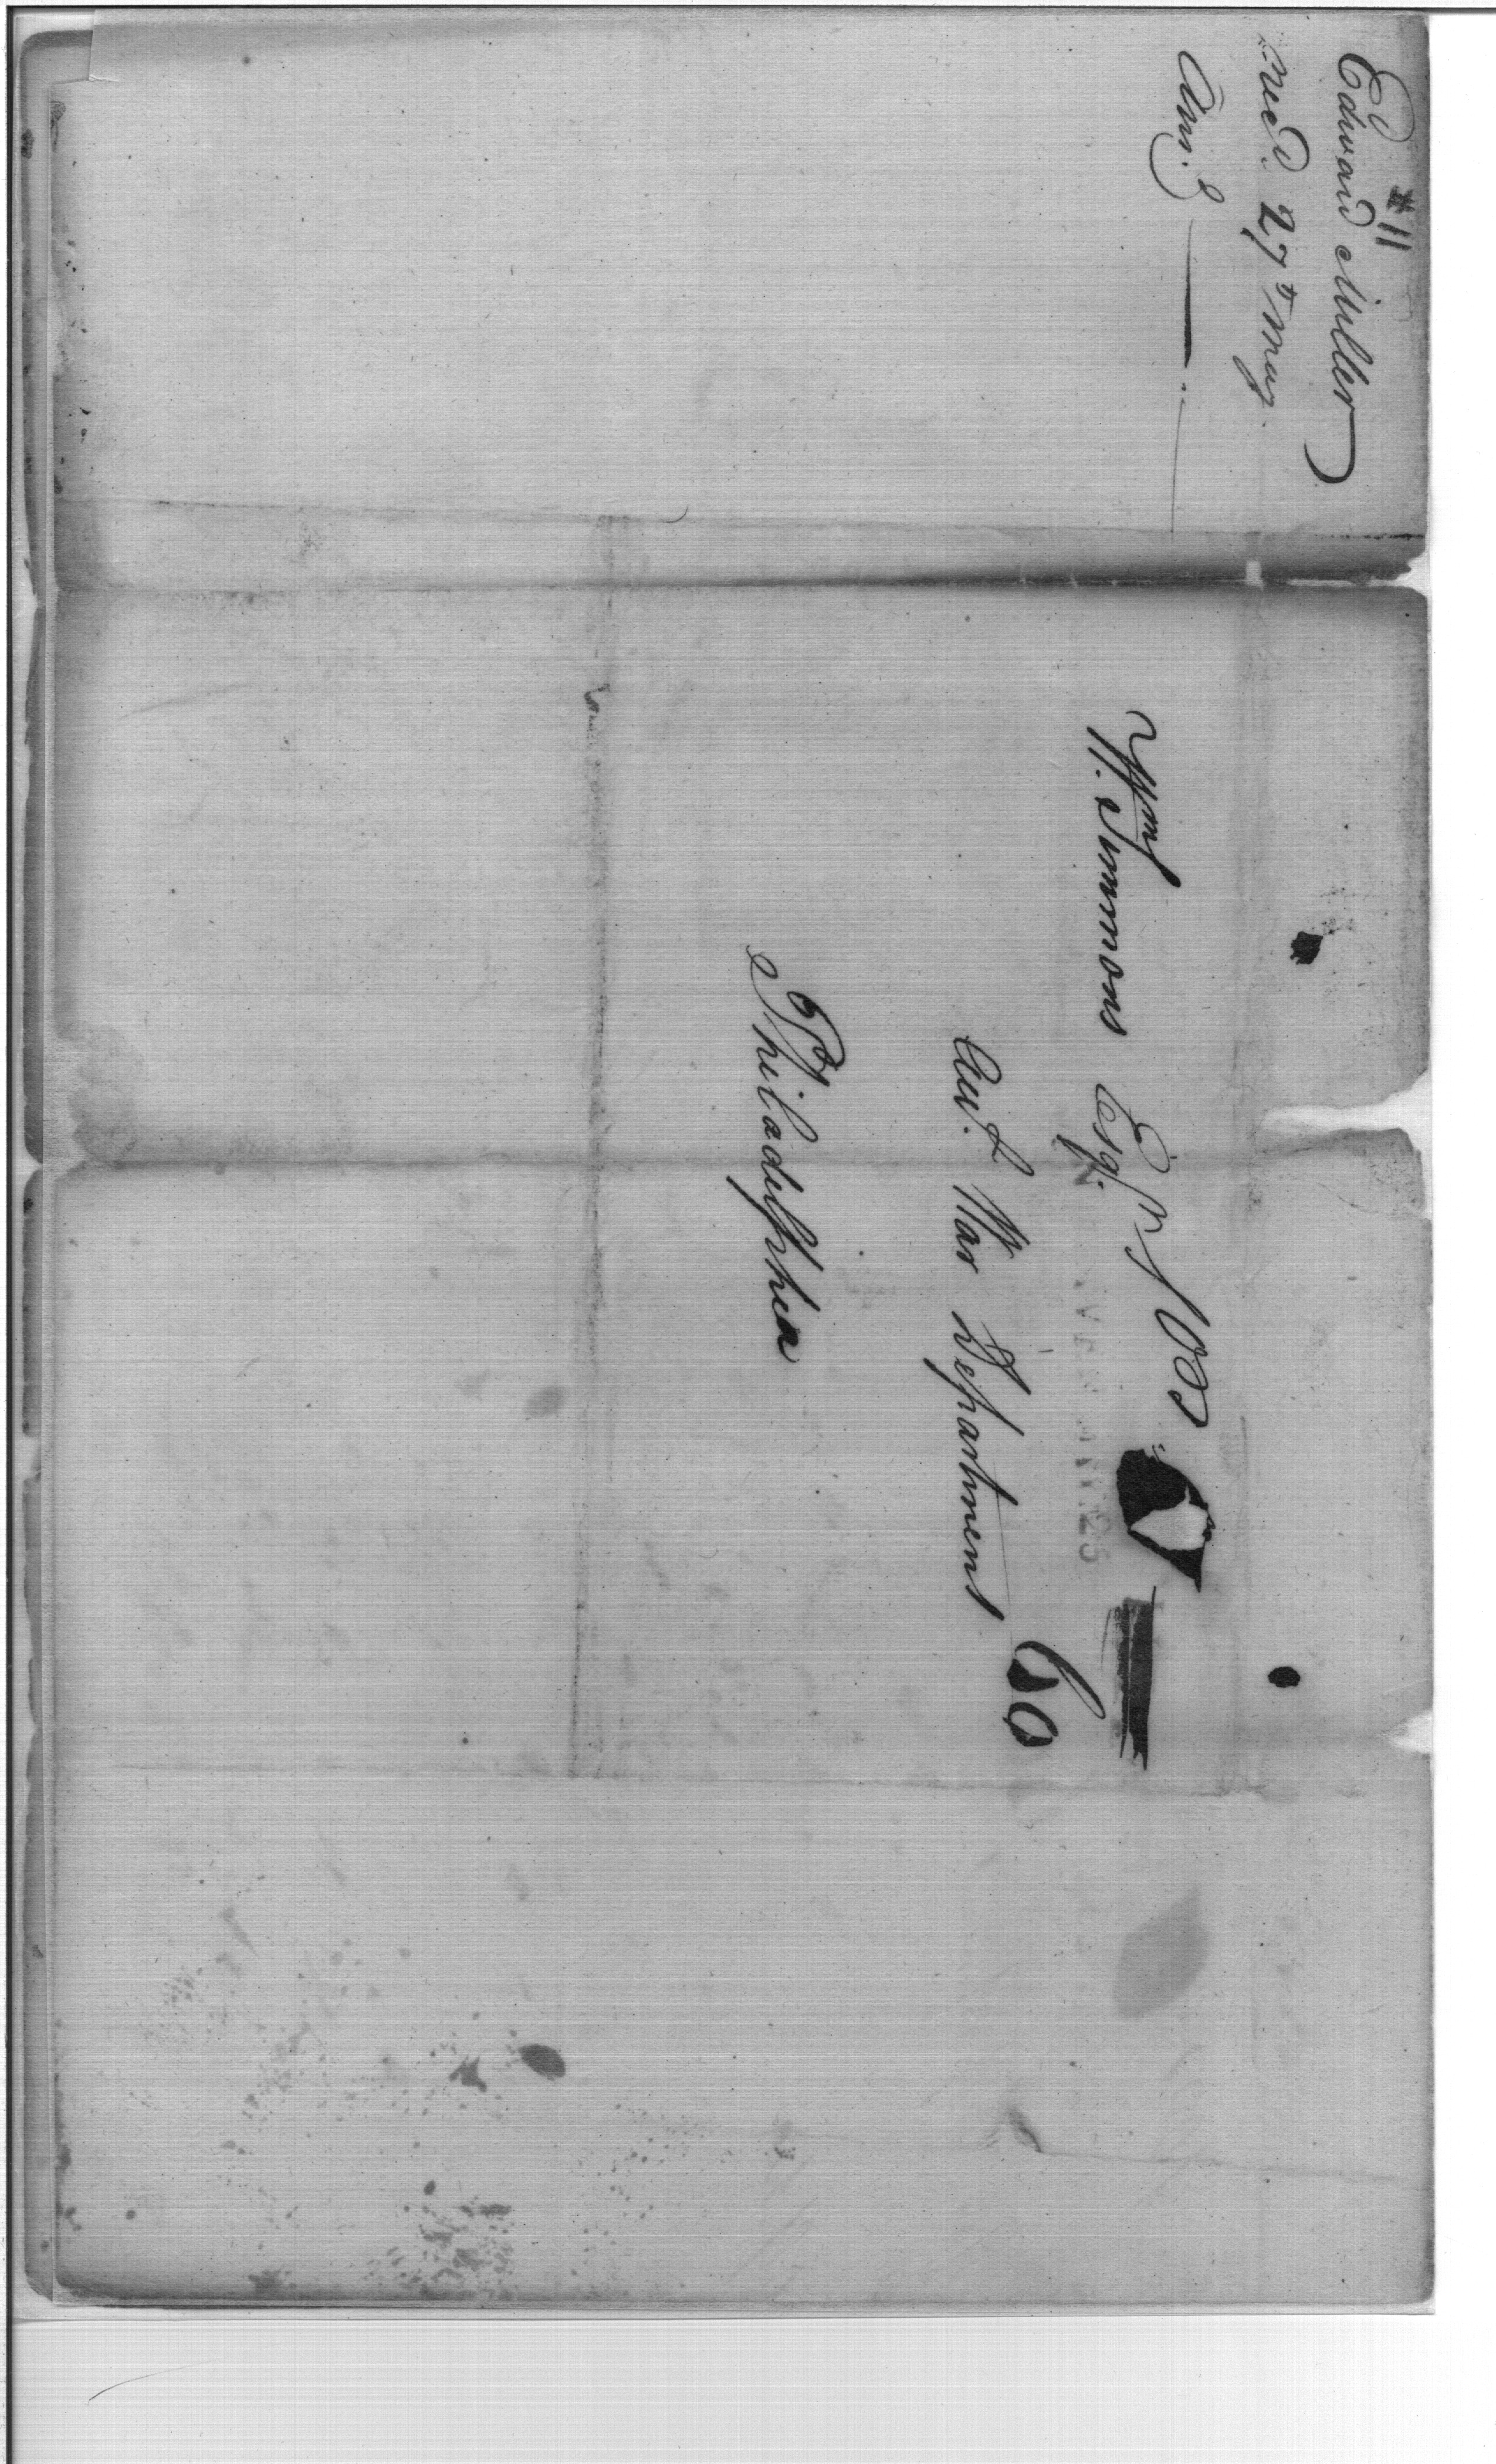 #11
Edward Miller
recd. 27th May
Ans.
Wm Simmons Esqr.
War Department
60
Philadelphia
25